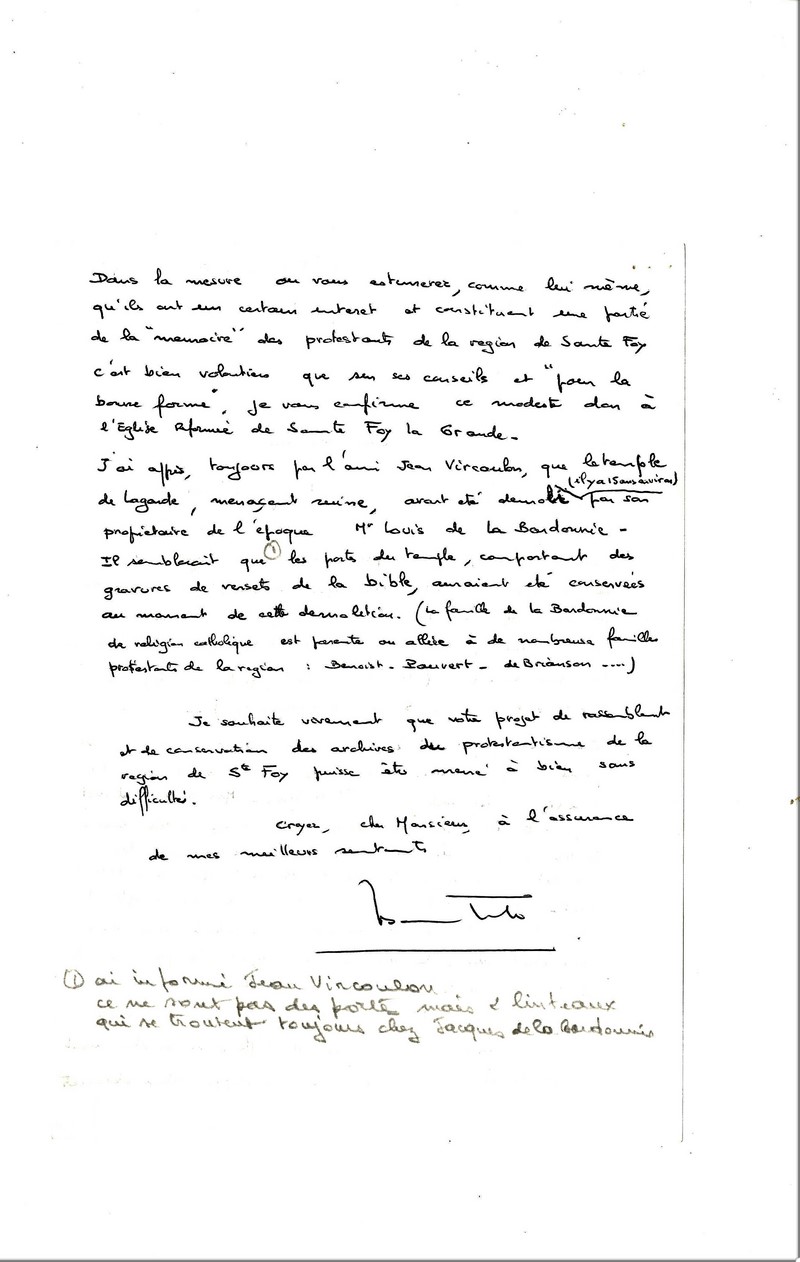 Dans la mesure ou vous estimerez, comme lui même,
qu'ils ont un certain interet et constituent une partie
de la "memoire" des protestants de la region de Sainte Foy
c'est bien volontiers que sur ses conseils et "pour la
bonne forme", je vous confirme ce modeste don à
l'Eglise Réformée de Sainte Foy la Grande.
J'ai appris, toujours par l'ami Jean Vircoulon, que le temple
(il y a 15 ans environ)
de Lagarde, menaçant ruine, avait été demoli par son
propriétaire de l'époque Mr Louis de la Bardonnie -
Il semblerait que ① les ports du temple, comportant des
gravures de versets de la bible, auraient eté conservées
au moment de cette demolition. (la famille de la Bardonnie
de religion catholique est parente ou alliée à de nombreuse familles
protestants de la region : Benoist - Pauvert - de Brianson ....)
Je souhaite vivement que votre projet de rassemblent
et de conservation des archives du protestantisme de la
region de Ste Foy puisse être mené à bien sans
difficulté.
Croyez, cher Monsieur, à l'assurance
de mes meilleurs sentiments
① ai informé Jean Vircoulon
ce ne sont pas des porte mais 2 linteaux
qui se trouvent toujours chez Jacques de la Bardonnie